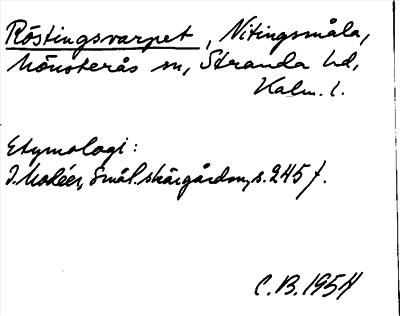 Röstingsvarpet, Nitingsmåla,
Mönsterås sn, Stranda hd,
Kalm. l.
Etymologi:
I. Modéer, Smål. skärgårdsn, s. 245 f.
C. B. 1954